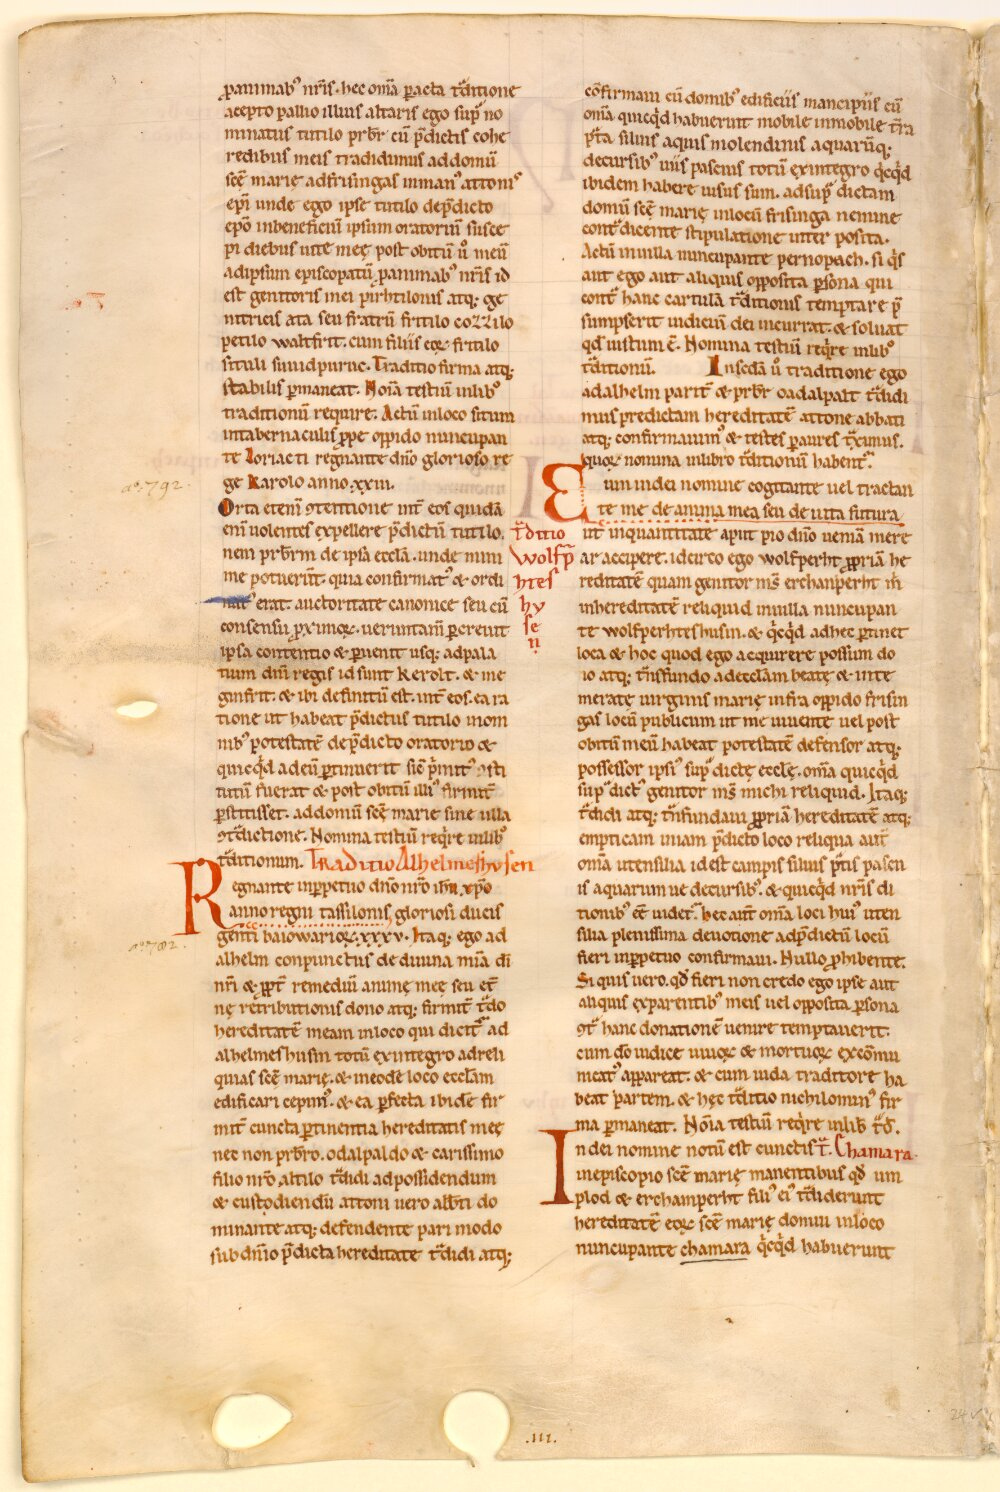 ꝓ animabꝰ nr̄is. hec om̄a ꝑacta t̄ditione
acepto pallio illius altaris ego sup̄ no
minatus tutilo prb̄r cū p̄dictis cohe
redibus meis tradidimus ad domū
sc̄e marię ad frisingas in manꝰ attonis
ep̄i unde ego ipse tutilo de p̄dicto
ep̄o in beneficiū ipsum oratoriū susce
pi diebus uite meę post obitū ū meū
ad ipsum episcopatū ꝓ animabꝰ nr̄is id
est genitoris mei pirhtilonis atq; ge
nitricis ata seu fratrū fritilo cozzilo
petilo waltfrit. cum filiis eoꝝ fritilo
situli sinidpuruc. Traditio firma atq;
stabilis ꝑmaneat. Noīa testiū in libꝰ
traditionū require. Actū in loco situm
in tabernaculis ꝓpe oppido nuncupan
te Ioriacti regnante dn̄o glorioso re
ge Karolo anno .xxiiii.
Orta eteni ꝯtentione int̄ eos quidā
eni uolentes expellere p̄dictū tutilo.
nem prb̄rm de ipsa eccl̄a. unde mini
me potuerūt. quia confirmatꝰ & ordi
natꝰ erat. auctoritate canonice seu cū
consensu ꝓximoꝝ. ueruntam̄ ꝑcreuit
ipsa contentio & ꝑuenit usq; ad pala
tium dn̄i regis id sunt kerolt. & me
ginfrit. & ibi definitū est. int̄ eos. ea ra
tione ut habeat p̄dictus tutilo in om
nibꝰ potestatē de p̄dicto oratorio &
quicq̄d ad eū ꝑtinuerit sic̄ p̄mitꝰ ꝯsti
tutū fuerat & post obitū illiꝰ firmit̄
ꝑstitisset. ad domū sc̄e marie sine ulla
ꝯt̄dictione. Nomina testiū req̄re in libꝰ
t̄ditionum. Traditio Alhelmeshvsen
Regnante in ꝑpetuo dn̄o nr̄o ihū xp̄o
anno regni tassilonis, gloriosi ducis
genti baiowarioꝝ .xxxv. Itaq; ego ad
alhelm conpunctus de diuina mīa dī
nr̄i & ꝓpt̄ remediū animę meę seu et̄
nę retributionis dono atq; firmit̄ t̄do
hereditatē meam in loco qui dicit̄ ad
alhelmeshusin totū ex integro ad reli
quias sc̄e marię. & in eodē loco eccl̄am
edificari cepimꝰ. & ea ꝑfecta ibidē fir
mit̄ cuncta ꝑtinentia hereditatis meę
nec non prb̄ro. odalpaldo & carissimo
filio nr̄o altilo t̄didi ad possidendum
& custodiendū attoni uero abb̄ti do
minante atq; defendente pari modo
sub dn̄io p̄dicta hereditate t̄didi atq;
aͦ. 792.
aͦ. 782.
cōfirmaui cū domibꝰ edificiis mancipiis cū
om̄a quicq̄d habuerunt mobile inmobile t̄ra
p̄ta siluis aquis molendinis aquarūq;
decursibꝰ uiis pascuis totū ex integro q̄cq̄d
ibidem habere uisus sum. ad sup̄ dictam
domū sc̄e marię in locū frisinga nemine
cont̄dicente stipulatione inter posita.
Actū in uilla nuncupante pernopach. si q̄s
aut ego aut aliquis opposita ꝑsona qui
cont̄ hanc cartulā t̄ditionis temptare p̄
sumpserit iudiciū dei incurrat. & soluat
qd̄ iustum ē. Nomina testiū req̄re in libꝰ
t̄ditionū. In sedā ū traditione ego
adalhelm parit̄ & prb̄r oadalpalt t̄didi
mus predictam hereditatē attone abbati
atq; confirmauimꝰ & testes ꝑ aures t̄ximus.
quoꝝ nomina in libro t̄ditionū habent̄.
Cum in dei nomine cogitante uel tractan
te me de anima mea seu de uita futura
T̄ditio
Wolfp̄
htes
hv
se
n
ut in quantitate aput pio dn̄o ueniā mere
ar accipere. idcirco ego wolfperht ꝓpriā he
reditatē quam genitor ms̄ erchanperht m̄
in hereditatē reliquid in uilla nuncupan
te wolfperhteshusin. & q̄cq̄d ad hec ꝑtinet
loca & hoc quod ego acquirere possum do
io atq; t̄nsfundo ad eccl̄am beatę & inte
meratę uirginis marię infra oppido frisin
gas locū publicum ut me uiuente uel post
obitū meū habeat potestatē defensor atq;
possessor ipsiꝰ sup̄ dictę eccl̄ę. om̄a quicq̄d
sup̄ dictꝰ genitor ms̄ michi reliquid. Itaq;
t̄didi atq; t̄nsfundaui ꝓpriā hereditatē atq;
empticam in iam p̄dicto loco reliqua aut̄
om̄a utensilia id est campis siluis p̄tis pascu
is aquarumue decursibꝰ. & quicq̄d nr̄is di
tionibꝰ eē uidet̄. hec aut̄ om̄a loci huiꝰ uten
silia plenissima deuotione ad p̄dictū locū
fieri in ꝑpetuo confirmaui. Nullo ꝓhibente.
Si quis uero. qd̄ fieri non credo ego ipse aut
aliquis ex parentibꝰ meis uel opposita ꝑsona
ꝯt̄ hanc donationē uenire temptauerit.
cum dō iudice uiuoꝝ & mortuoꝝ excōmu
nicatꝰ appareat. & cum iuda traditore ha
beat partem. & hęc t̄ditio nichilominꝰ fir
ma ꝑmaneat. Nōia testiū req̄re in lib̄ t̄d̄.
In dei nomine notū est cunctis T̄. Chamara.
in episcopio sc̄e marię manentibus qd̄ um
plod & erchamperht filiꝰ eiꝰ t̄diderunt
hereditatē eoꝝ sc̄e marię domui in loco
nuncupante chamara q̄cq̄d habuerunt
.III.
24v